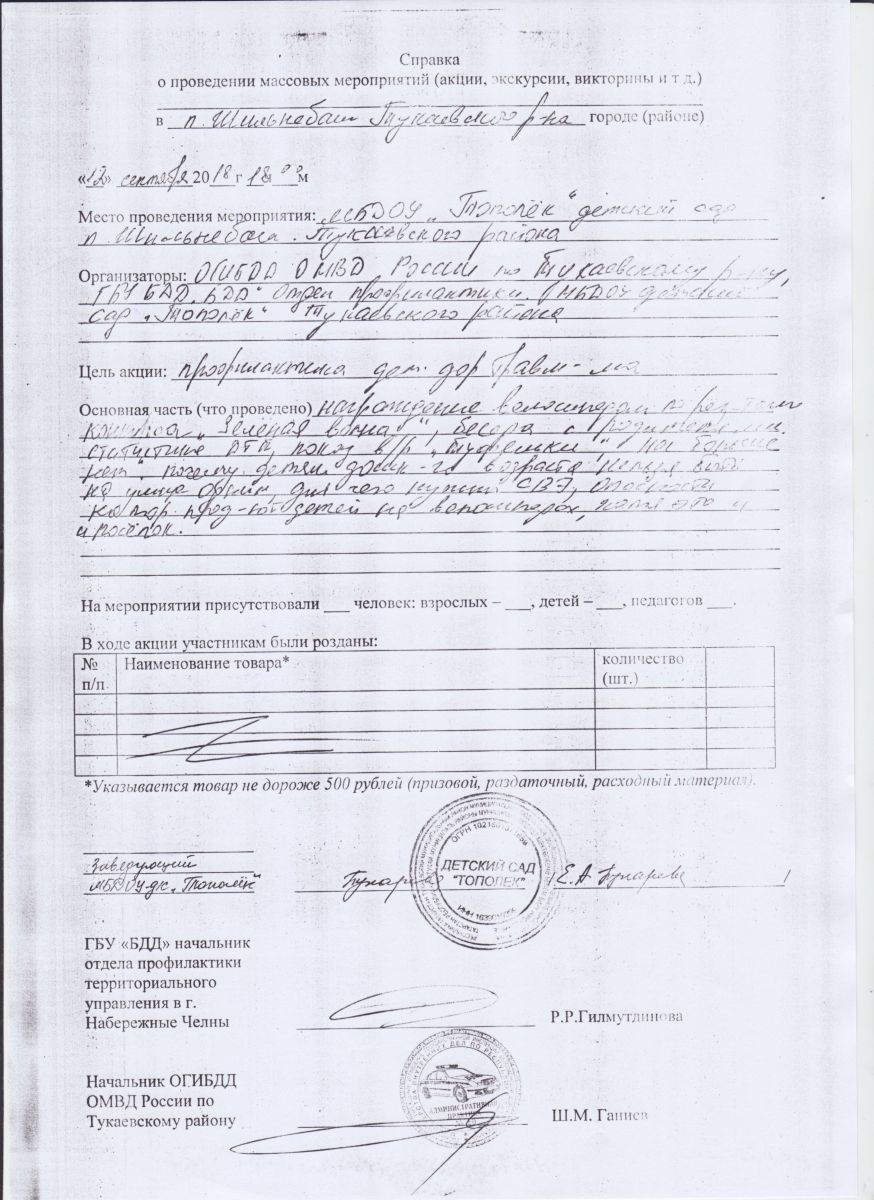 Справка
о проведении массовых мероприятий (акции, экскурсии, викторины и т д.)
в п. Шильнебаш Тукаевского р-на городе (районе)
«12» сентября 2018 г 18 00 м
Место проведения мероприятия: МБДОУ „Тополёк" детский сад
п. Шильнебаш. Тукаевского района
Организаторы: ОГИБДД ОМВД России по Тукаевскому р-ну,
ГБУ БДД, Отдел профилактики. МБДОУ детский
сад „Тополёк" Тукаевского района
Цель акции: профилактика дет. дор травм-ма
Основная часть (что проведено) награждение велосипедом
конкурса „Зелёная волна", беседа с родителями,
статистике ДТП, показ в/р
детям возраста нельзя
на улицу для чего нужны СВЭ, опасности
детей на велосипедах,
На мероприятии присутствовали ___ человек: взрослых – ___, детей – ___, педагогов ___.
В ходе акции участникам были розданы:
№ п/п Наименование товара* количество (шт.)
*Указывается товар не дороже 500 рублей (призовой, раздаточный, расходный материал).
Заведующий
МБДОУ д/с „Тополёк"
ДЕТСКИЙ САД
"ТОПОЛЕК"
ОГРН
ИНН
Е.А
ГБУ «БДД» начальник
отдела профилактики
территориального
управления в г.
Набережные Челны Р.Р.Гилмутдинова
АДМИНИСТРАТИВНАЯ
Начальник ОГИБДД
ОМВД России по
Тукаевскому району Ш.М. Ганиев